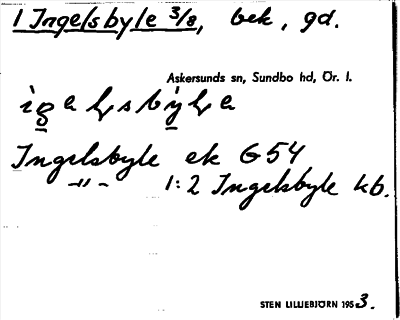 1 Ingelsbyle 3/8, bek, gd.
Askersunds sn, Sundbo hd, Ör. l.
Ingelsbyle ek G54
-"- 1:2 Ingelsbyle kb.
STEN LILLIEBJÖRN 1953.